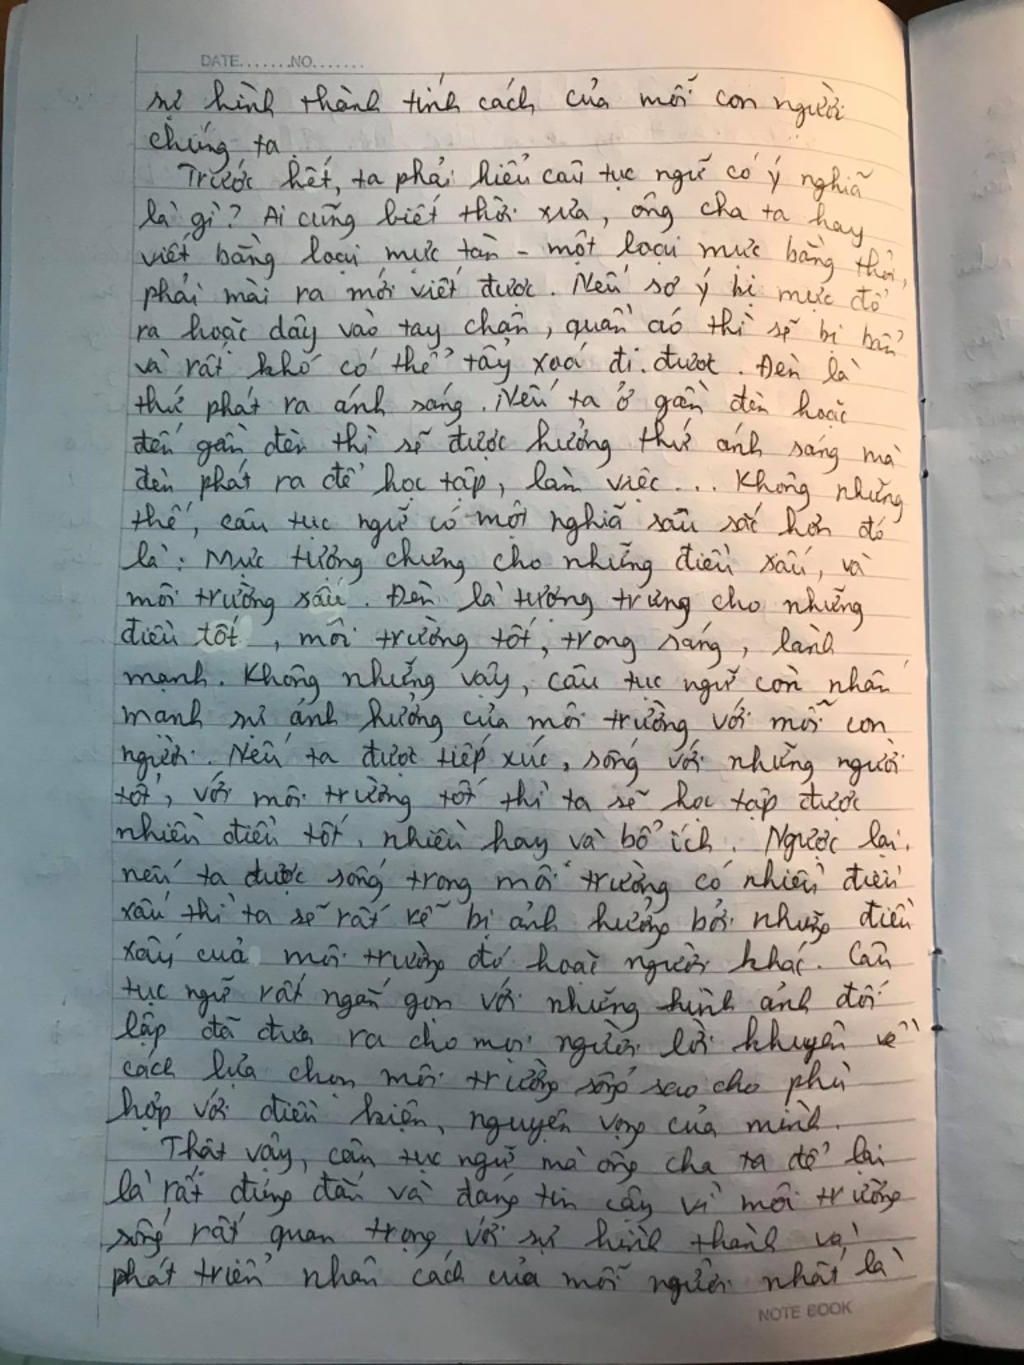 DATE.......NO.......
sự hình thành tính cách của mỗi con người
chúng ta.
Trước hết, ta phải hiểu câu tục ngữ có ý nghĩa
là gì? Ai cũng biết thời xưa, ông cha ta hay
viết bằng loại mực tàn - một loại mực bằng thỏi,
phải mài ra mới viết được. Nếu sơ ý bị mực đổ
ra hoặc dây vào tay chân, quần áo thì sẽ bị bẩn
và rất khó có thể tẩy xoá đi được. Đèn là
thứ phát ra ánh sáng. Nếu ta ở gần đèn hoặc
đến gần đèn thì sẽ được hưởng thứ ánh sáng mà
đèn phát ra để học tập, làm việc... Không những
thế, câu tục ngữ có một nghĩa sâu sắc hơn đó
là: Mực tượng chưng cho những điều xấu, và
môi trường xấu. Đèn là tượng trưng cho những
điều tốt, môi trường tốt, trong sáng, lành
mạnh. Không những vậy, câu tục ngữ còn nhấn
mạnh sự ảnh hưởng của môi trường với mỗi con
người. Nếu ta được tiếp xúc, sống với những người
tốt, với môi trường tốt thì ta sẽ học tập được
nhiều điều tốt, nhiều hay và bổ ích. Ngược lại,
nếu ta được sống trong môi trường có nhiều điều
xấu thì ta sẽ rất rễ bị ảnh hưởng bởi những điều
xấu cuả môi trường đó hoặc người khác. Câu
tục ngữ rất ngắn gọn với những hình ảnh đối
lập đã đưa ra cho mọi người lời khuyên về
cách lựa chọn môi trường sống sao cho phù
hợp với điều kiện, nguyện vọng của mình.
Thật vậy, câu tục ngữ mà ông cha ta để lại
là rất đúng đắn và đáng tin cậy vì môi trường
sống rất quan trọng với sự hình thành và
phát triển nhân cách của mỗi người nhất là
NOTE BOOK